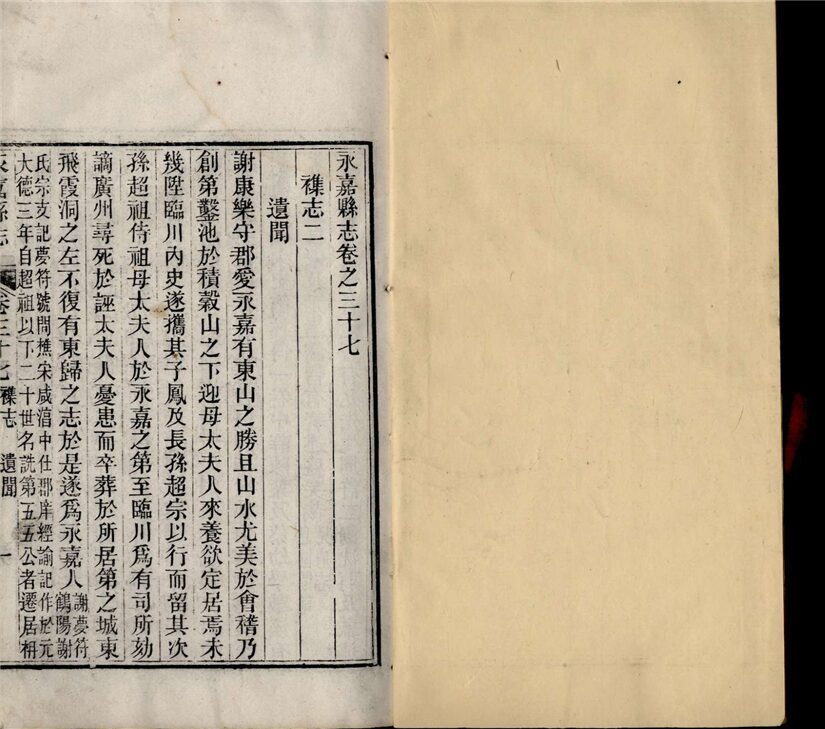 永嘉縣志卷之三十七
襍志二
遺聞
謝康樂守郡愛永嘉有東山之勝且山水尤美於會稽乃
創第鑿池於積穀山之下迎母太夫人來養欲定居焉未
幾陞臨川內史遂攜其子鳳及長孫超宗以行而留其次
孫超祖侍祖母太夫人於永嘉之第至臨川爲有司所劾
謫廣州尋死於誣太夫人憂患而卒葬於所居第之城東
飛霞洞之左不復有東歸之志於是遂爲永嘉人謝夢符鶴陽謝
氏宗支記夢符號問樵宋咸淳中仕郡庠經諭記作於元
大德三年自超祖以下二十世名詵第五五公者遷居枏
永嘉縣志 卷三十七襍志 遺聞 一